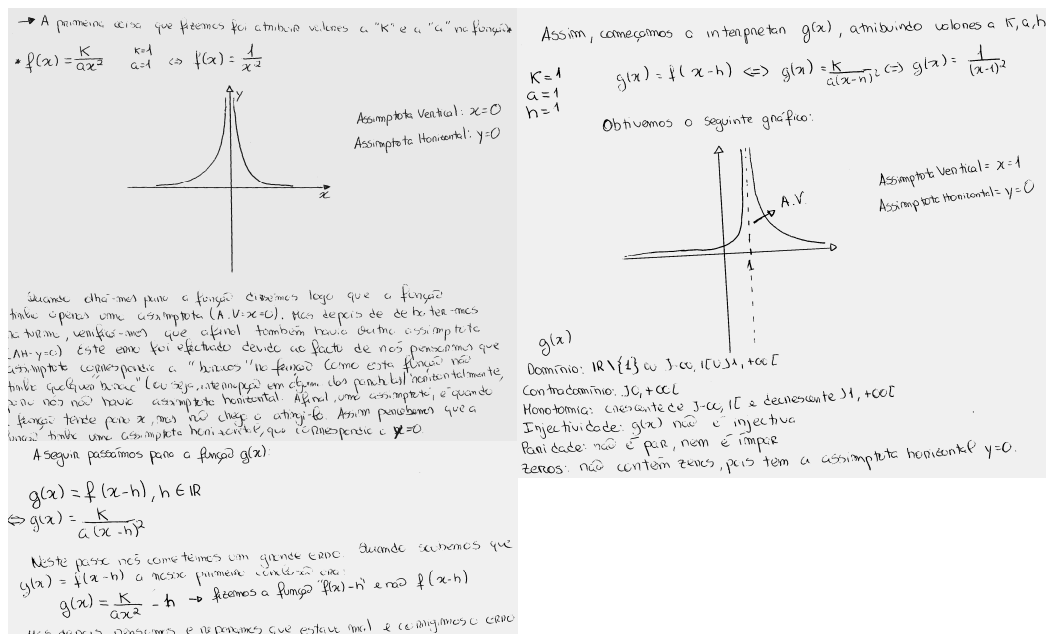 → A primeira coisa que fizemos foi atribuir valores a "K" e a "a" na função
• f(x) = K/ax² K=1 a=1 ⇔ f(x) = 1/x²
y
Assimptota Vertical: x=0
Assimptota Horizontal: y=0
x
Quando olhá-mos para a função dissemos logo que a função
tinha apenas uma assimptota (A.V: x=0). Mas depois de debater-mos
turma, verificá-mos que afinal também havia outra assimptota
A.H: y=0) Este erro foi efectuado devido ao facto de nós pensarmos que
assimptota correspondia a "buracos" na função como esta função não
tinha qualquer "buraco" (ou seja, interrupção em algum dos pontos) horizontalmente,
para nós não havia assimptota horizontal. Afinal, uma assimptota, é quando
função tende para x, mas não chega a atingi-lo. Assim percebemos que a
função tinha uma assimptota horizontal, que correspondia a y=0.
A seguir passámos para a função g(x):
g(x) = f(x-h), h ∈ IR
⇔ g(x) = K/a(x-h)²
Neste passo nós cometemos um grande erro. Quando soubemos que
g(x) = f(x-h) a nossa primeira era:
g(x) = K/ax² - h → fizemos a função "f(x)-h" e não f(x-h)
Mas depois pensamos e reparamos que estava mal e corrigimos o erro
Assim, começamos a interpretar g(x), atribuindo valores a K, a, h
K=1
a=1
h=1
g(x) = f(x-h) ⇔ g(x) = K/a(x-h)² ⇔ g(x) = 1/(x-1)²
Obtivemos o seguinte gráfico:
Assimptota Vertical = x=1
Assimptota Horizontal = y=0
A.V.
1
g(x)
Domínio: IR\{1} ou ]-∞, 1[ U ]1, +∞[
Contradomínio: ]0, +∞[
Monotomia: crescente de ]-∞, 1[ e decrescente ]1, +∞[
Injectividade: g(x) não é injectiva
Paridade: não é par, nem é ímpar
Zeros: não contém zeros, pois tem a assimptota horizontal y=0.